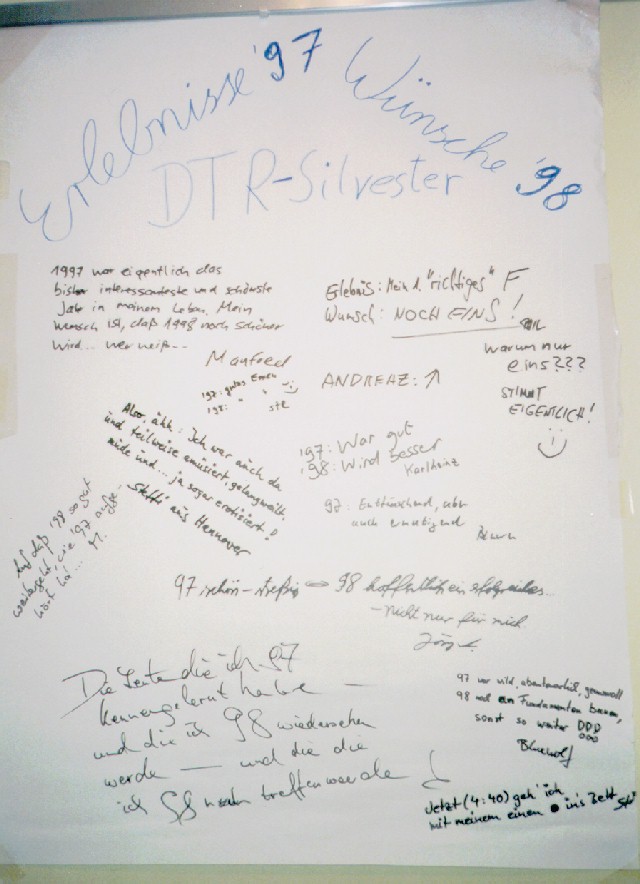 Erlebnisse '97 Wünsche '98
DTR-Silvester
1997 war eigentlich das
bisher interessanteste und schönste
Jahr in meinem Leben. Mein
Wunsch ist, daß 1998 noch schöner
wird... wer weiß...
Manfred
'97: gutes Essen
'98: " " ste
Erlebnis: Mein 1. "richtiges" F
Wunsch: NOCH EINS!
Warum nur
eins???
STIMMT
EIGENTLICH!
ANDREAZ: ↑
Also, ähh: Ich war auch da
und teilweise amüsiert, gelangweilt,
müde und... ja sogar erotisiert!
Steffi aus Hannover
'97: War gut
'98: Wird besser
Karlheinz
97: Enttäuschend, aber
auch ermutigend
Auf daß '98 so gut
weitergeht, wie '97 aufge-
hört ha'... M.
97 schön - stressig 98 hoffentlich ein erfolgreiches...
- nicht nur für mich.
Jörg
Die Leute die ich 97
kennengelernt habe —
und die ich 98 wiedersehen
werde — und die die
ich 98 noch treffen werde
97 war wild, abenteuerlich, grauenvoll
98 mal ein Fundament bauen,
sonst so weiter DDD
Jetzt (4:40) geh' ich
mit meinem einen ● in's Bett